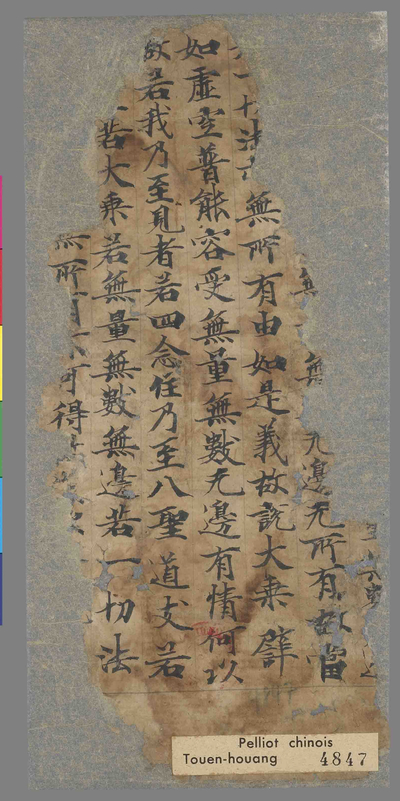 無 無 无邊无所有故當
一切法 無所有由如是義故說大乘譬
如虛空普能容受無量無數无邊有情何以
故若我乃至見者若四念住乃至八聖道支若
若大乘若無量無數無邊若一切法
無所有 可得
Pelliot chinois
Touen-houang 4847